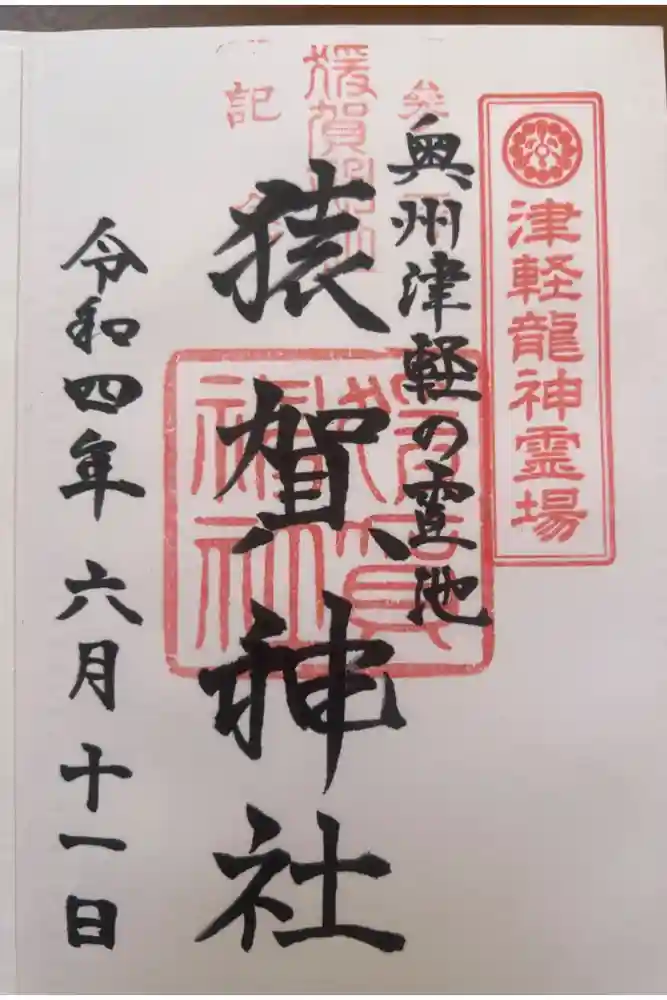 津軽龍神霊場
奥州津軽の霊池
猿賀神社
令和四年 六月 十一日